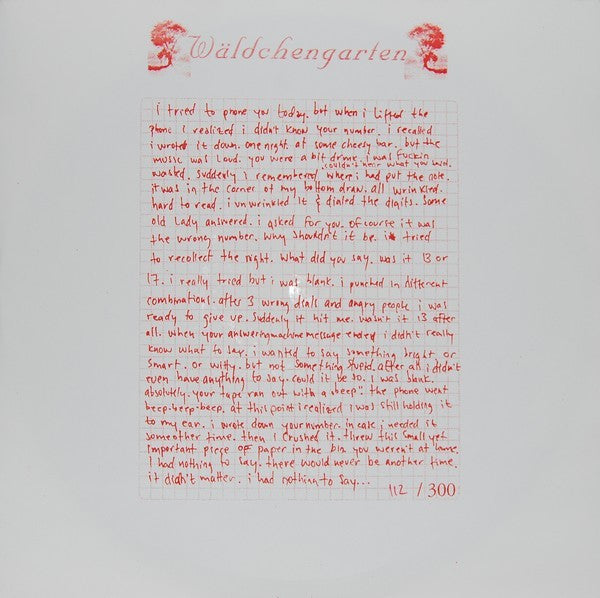 Wäldchengarten
i tried to phone you today. but when i lifted the
phone i realized i didn't know your number. i recalled
i wrote it down. one night. at some cheesy bar. but the
music was loud. you were a bit drunk. i was fuckin
couldn't hear what you said.
wasted. suddenly i remembered where i had put the note.
it was in the corner of my bottom draw, all wrinkled.
hard to read. i unwrinkled it & dialed the digits. some
old lady answered. i asked for you. of course it was
the wrong number. why shouldn't it be. i tried
to recollect the night. what did you say. was it 13 or
17. i really tried but i was blank. i punched in different
combinations. after 3 wrong dials and angry people i was
ready to give up. suddenly it hit me. wasn't it 13 after
all. when your answeringmachine message ended i didn't really
know what to say. i wanted to say something bright or
smart. or witty. but not something stupid. after all i didn't
even have anything to say. could it be so. i was blank.
absolutely. your tape ran out with a "beep". the phone went
beep-beep-beep. at this point i realized i was still holding it
to my ear. i wrote down your number. in case i needed it
someother time. then i crushed it. threw this small yet
important piece of paper in the bin. you weren't at home.
i had nothing to say. there would never be another time.
it didn't matter. i had nothing to say...
112 / 300